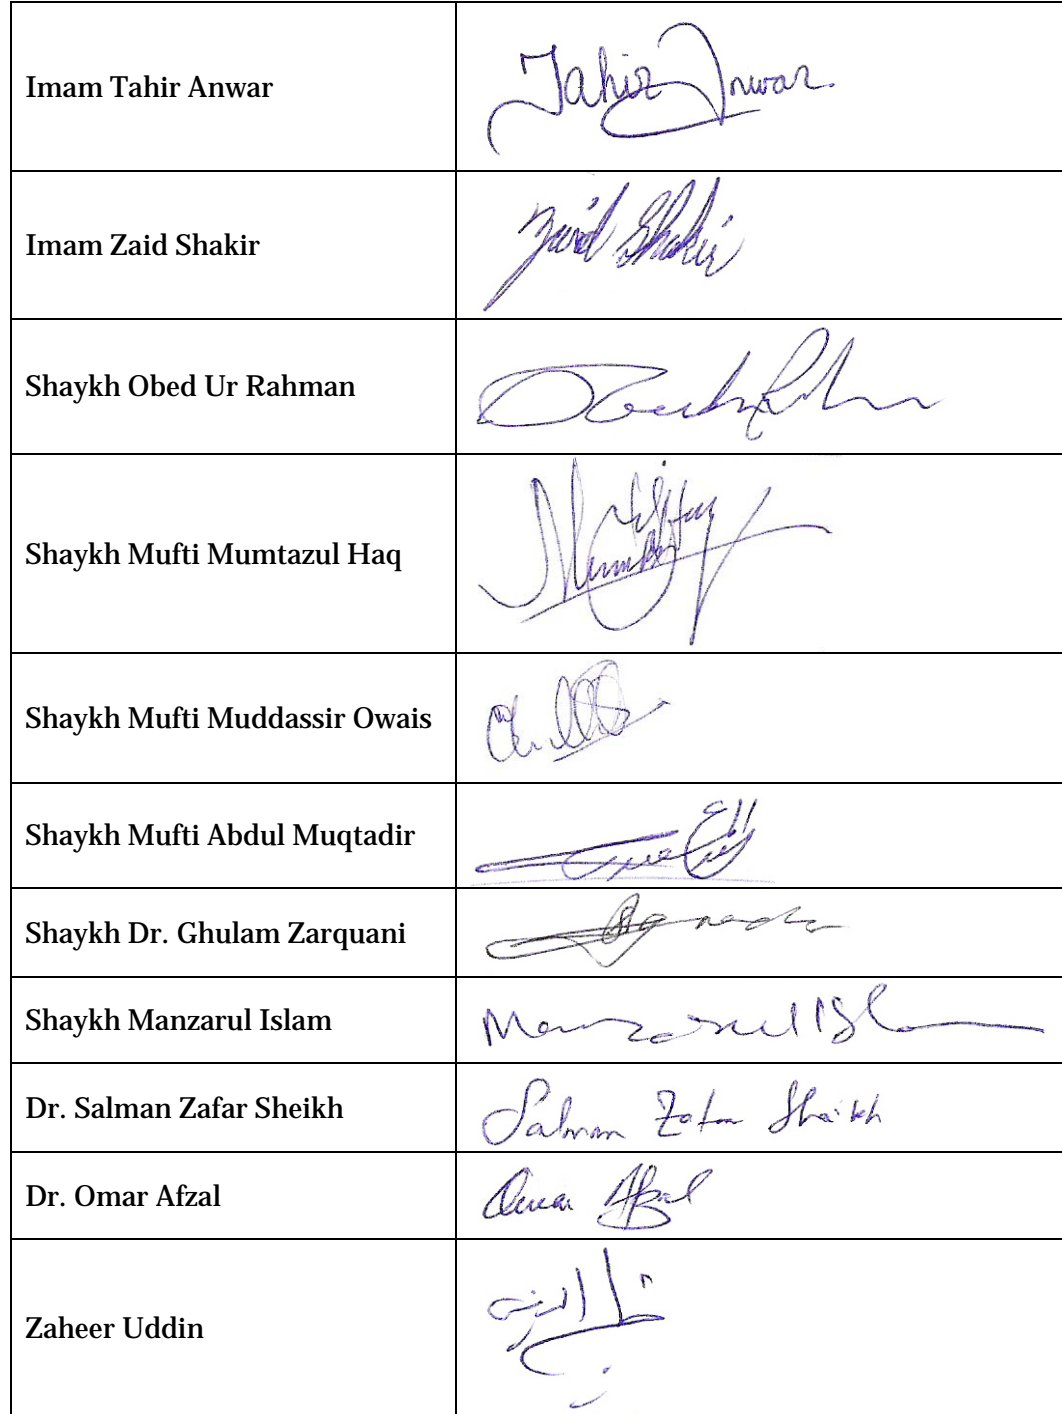 Imam Tahir Anwar
Tahir Anwar
Imam Zaid Shakir
Zaid Shakir
Shaykh Obed Ur Rahman
Shaykh Mufti Mumtazul Haq
Shaykh Mufti Muddassir Owais
Shaykh Mufti Abdul Muqtadir
Shaykh Dr. Ghulam Zarquani
Shaykh Manzarul Islam
Manzarul Islam
Dr. Salman Zafar Sheikh
Salman Zafar Shaikh
Dr. Omar Afzal
Omar Afzal
Zaheer Uddin